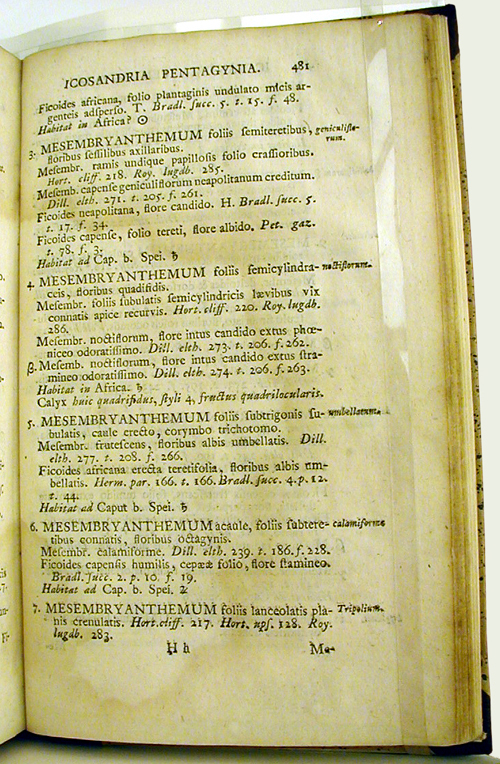 ICOSANDRIA PENTAGYNIA. 481
Ficoides africana, folio plantaginis undulato micis ar-
genteis adſperſo. T. Bradl. ſucc. 5. t. 15. f. 48.
Habitat in Africa? ☉
3. MESEMBRYANTHEMUM foliis ſemiteretibus, geniculiflo-
floribus ſeſſilibus axillaribus. rum.
Meſembr. ramis undique papilloſis folio craſſioribus.
Hort. cliff. 218. Roy. lugdb. 285.
Meſemb. capenſe geniculiflorum neapolitanum creditum.
Dill. elth. 271. t. 205. f. 261.
Ficoides neapolitana, flore candido. H. Bradl. ſucc. 5.
t. 17. f. 34.
Ficoides capenſe, folio tereti, flore albido. Pet. gaz.
t. 78. f. 3.
Habitat ad Cap. b. Spei. ♄
4. MESEMBRYANTHEMUM foliis ſemicylindra- noctiflorum.
ceis, floribus quadifidis.
Meſembr. foliis ſubulatis ſemicylindricis lævibus vix
connatis apice recurvis. Hort. cliff. 220. Roy. lugdb.
286.
Meſembr. noctiflorum, flore intus candido extus phœ-
niceo odoratiſſimo. Dill. elth. 273. t. 206. f. 262.
β. Meſemb. noctiflorum, flore intus candido extus ſtra-
mineo odoratiſſimo. Dill. elth. 274. t. 206. f. 263.
Habitat in Africa. ♄
Calyx huic quadrifidus, ſtyli 4, fructus quadrilocularis.
5. MESEMBRYANTHEMUM foliis ſubtrigonis ſu- umbellatum.
bulatis, caule erecto, corymbo trichotomo.
Meſembr. fruteſcens, floribus albis umbellatis. Dill.
elth. 277. t. 208. f. 266.
Ficoides africana erecta teretifolia, floribus albis um-
bellatis. Herm. par. 166. t. 166. Bradl. ſucc. 4. p. 12.
t. 44.
Habitat ad Caput b. Spei. ♄
6. MESEMBRYANTHEMUM acaule, foliis ſubtere- calamiforme
tibus connatis, floribus octagynis.
Meſembr. calamiforme. Dill. elth. 239. t. 186. f. 228.
Ficoides capenſis humilis, cepææ folio, flore ſtamineo.
Bradl. ſucc. 2. p. 10. f. 19.
Habitat ad Cap. b. Spei. ♃
7. MESEMBRYANTHEMUM foliis lanceolatis pla- Tripolium.
nis crenulatis. Hort. cliff. 217. Hort. upſ. 128. Roy.
lugdb. 283.
H h Me-